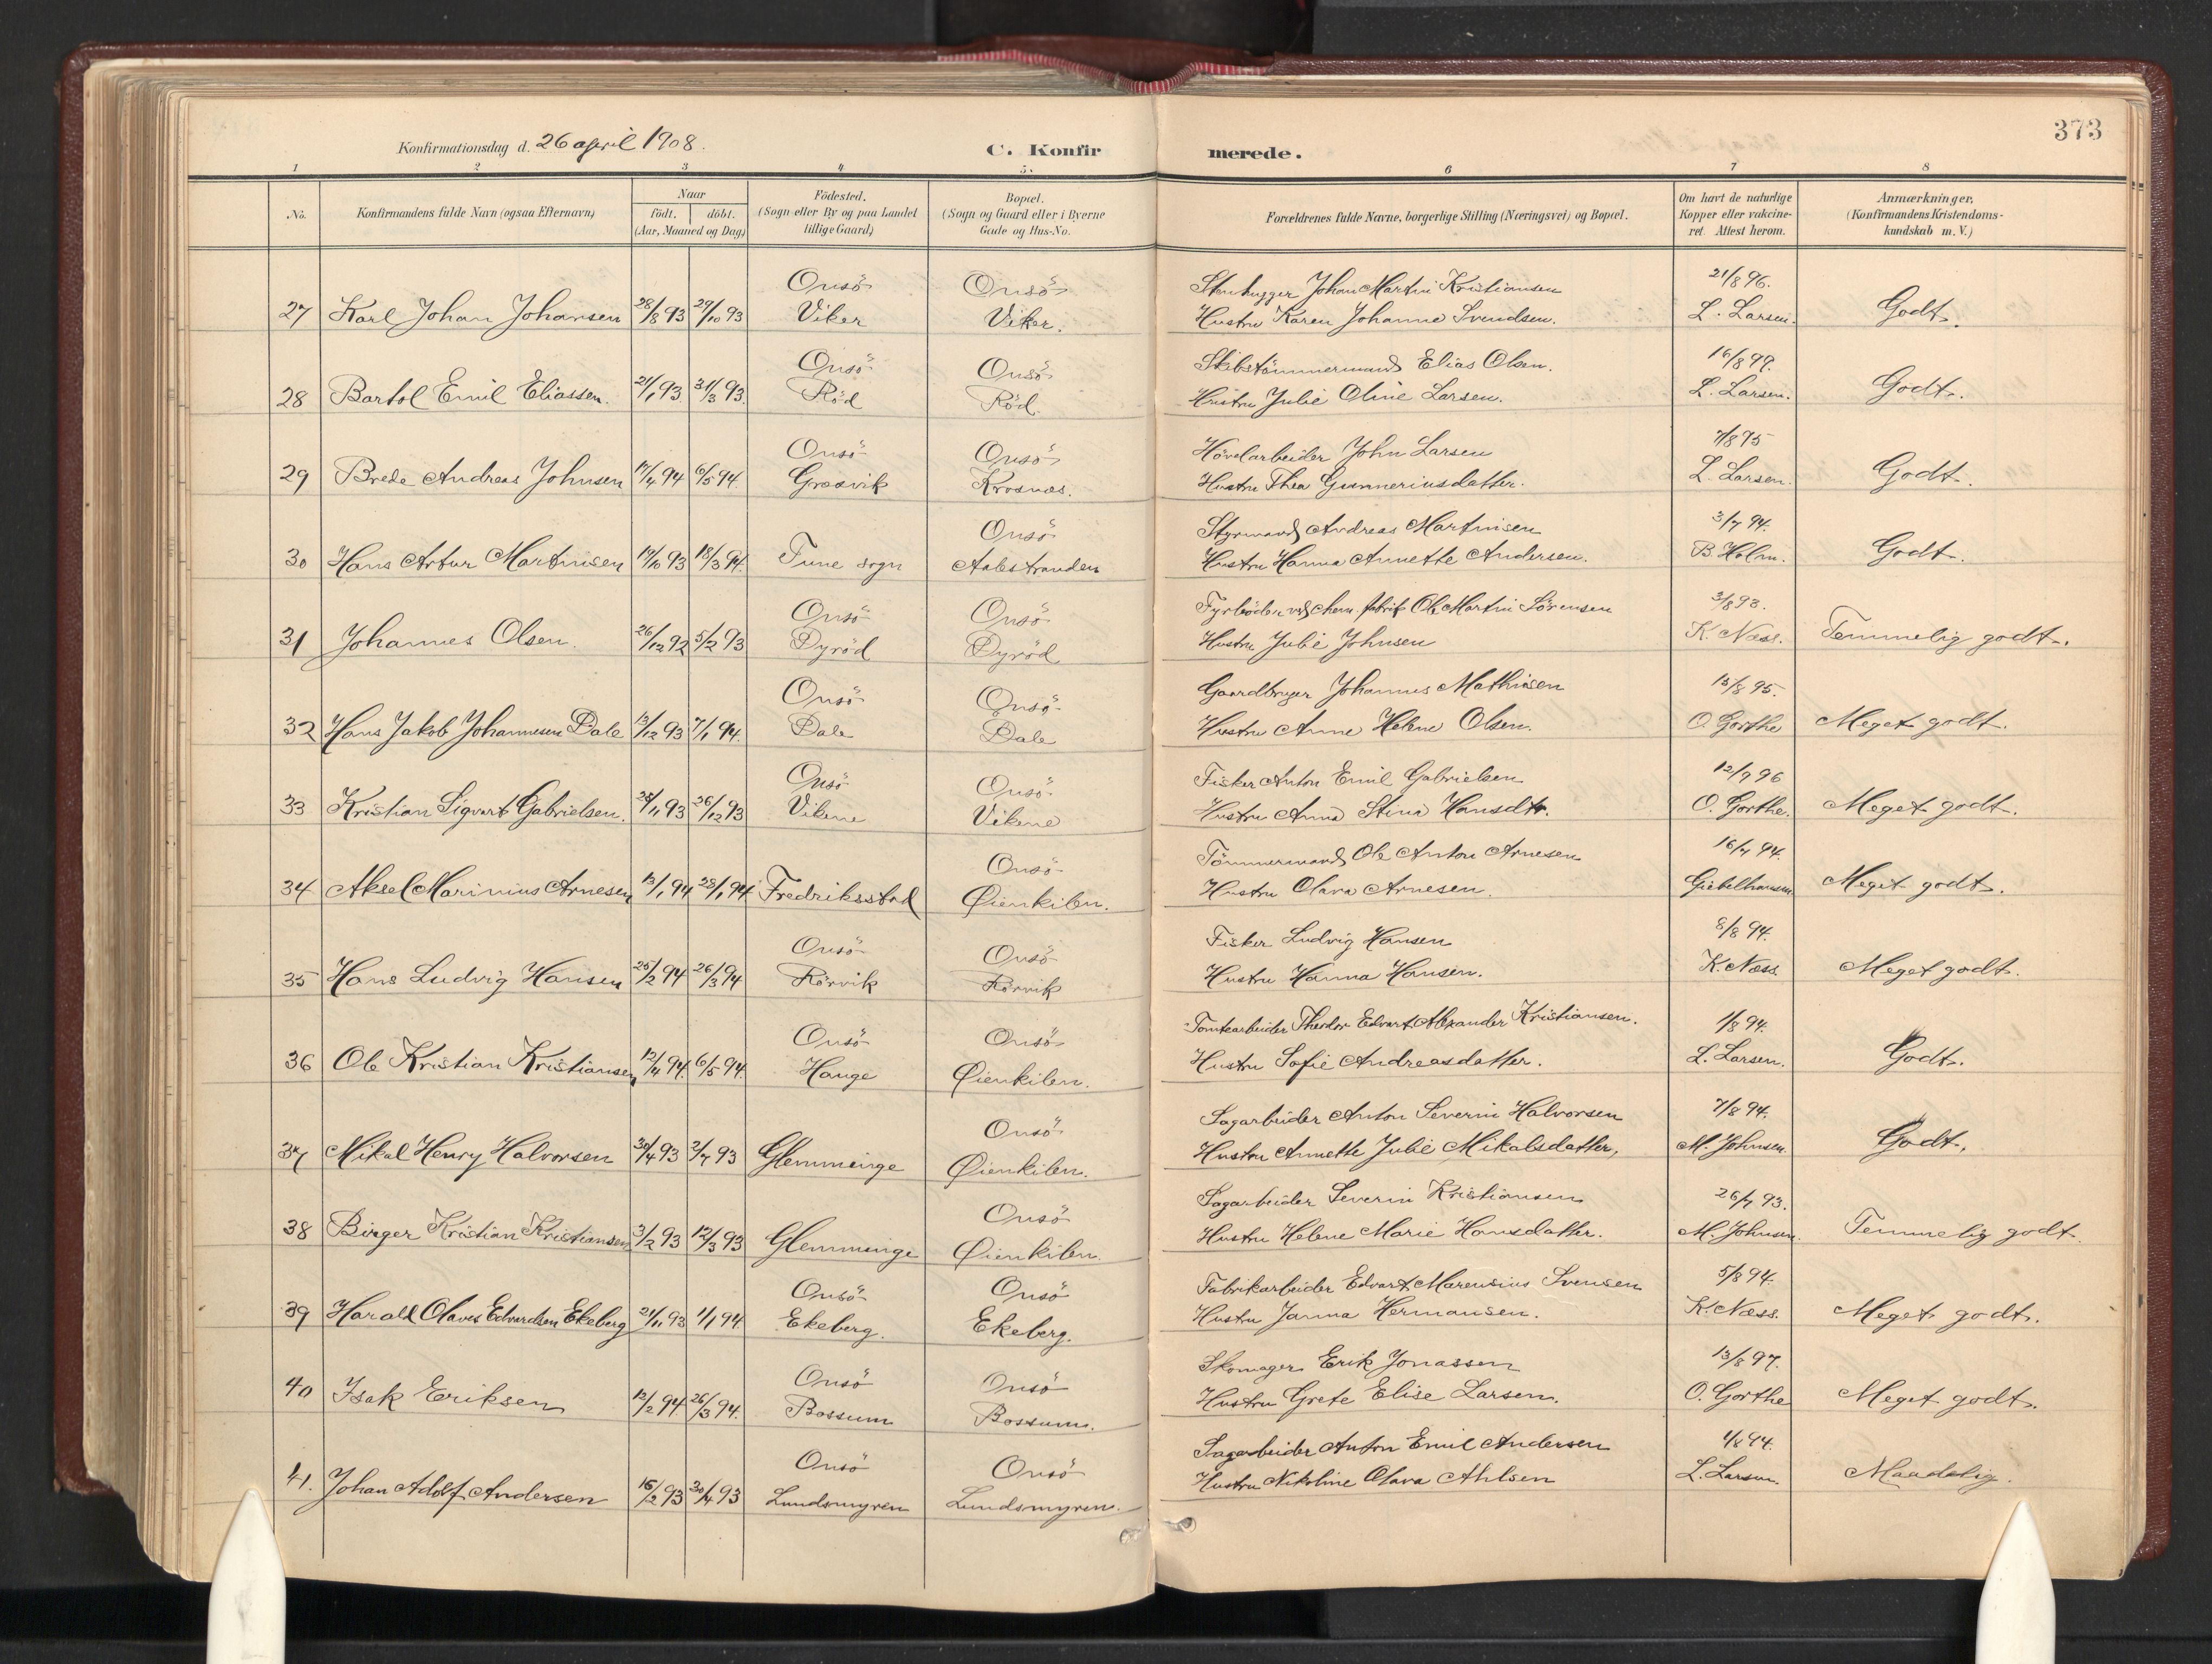 373
Konfirmationsdag d. 26 april 1908.
C. Konfirmerede.
1 2 3 4 5. 6 7 8
No.
Konfirmandens fulde Navn (ogsaa Efternavn)
Naar
födt. döbt.
(Aar, Maaned og Dag)
Födested.
(Sogn eller By og paa Landet
tillige Gaard)
Bopæl.
(Sogn og Gaard eller i Byerne
Gade og Hus-No.
Forældrenes fulde Navne, borgerlige Stilling (Næringsvei) og Bopæl.
Om havt de naturlige
Kopper eller vakcine-
ret. Attest herom.
Anmærkninger,
(Konfirmandens Kristendoms-
kundskab m. V.)
Onsö Onsö Stenhugger Johan Martin Kristiansen 21/8 96.
27 Karl Johan Johansen 28/8 93 29/10 93 Viker Viker. Hustru Karen Johanne Svendsen. L. Larsen. Godt.
Onsö Onsö Skibstömmermand Elias Olsen. 16/8 99.
28 Bartol Emil Eliassen. 21/1 93 31/3 93. Röd Röd. Hustru Julie Oline Larsen. L. Larsen. Godt.
Onsö Onsö Hövelarbeider John Larsen 7/8 95
29 Brede Andreas Johnsen 17/4 94 6/5 94. Gresvik Krosnæs. Hustru Thea Gunneriusdatter. L. Larsen. Godt.
Onsö Styrmand Andreas Martinsen 3/7 94.
30 Hans Artur Martinsen 19/10 93 18/3 94. Tune sogn Aalestranden Hustru Hanna Annette Andersen. B. Holm. Godt.
Onsö Onsö Fyrböder ved chem. fabrik Ole Martin Sörensen 3/8 93.
31 Johannes Olsen. 26/12 92 5/2 93 Dyröd Dyröd Hustru Julie Johnsen K. Næss. Temmelig godt.
Onsö Onsö Gaardbruger Johannes Mathisen 13/8 95.
32 Hans Jakob Johannesen Dale 13/12 93 7/1 94. Dale Dale Hustru Anne Helene Olsen. O. Gorthe Meget godt.
Onsö Onsö Fisker Anton Emil Gabrielsen 12/9 96
33 Kristian Sigvart Gabrielsen. 25/11 93 26/12 93 Vikene Vikene Hustru Anna Stina Hansdtr. O. Gorthe. Meget godt.
Onsö Tömmermand Ole Anton Arnesen 16/7 94.
34 Aksel Marinius Arnesen 13/1 94 28/1 94 Fredriksstad Øienkilen. Hustru Olava Arnesen. Giebelhausen Meget godt.
Onsö Onsö Fisker Ludvig Hansen 8/8 94.
35 Hans Ludvig Hansen 25/2 94 26/3 94 Rörvik Rörvik Hustru Hanna Hansen. K. Næss Meget godt.
Onsö Onsö Tomtearbeider Theodor Edvart Alexander Kristiansen. 1/8 94.
36 Ole Kristian Kristiansen 12/4 94. 6/5 94. Hauge Øienkilen. Hustru Sofie Andreasdatter. L. Larsen. Godt.
Onsö Sagarbeider Anton Severin Halvorsen 7/8 94.
37 Mikal Henry Halvorsen 30/4 93 2/7 93 Glemminge Øienkilen. Hustru Annette Julie Mikalsdatter, M. Johnsen. Godt.
Onsö Sagarbeider Severin Kristiansen 26/7 93.
38 Birger Kristian Kristiansen 3/2 93 12/3 93 Glemminge Øienkilen. Hustru Helene Marie Hansdatter. M. Johnsen. Temmelig godt.
Onsö Onsö Fabrikarbeider Edvart Marensius Svensen 5/8 94.
39 Harald Olaves Edvardsen Ekeberg 21/11 93 1/1 94. Ekeberg. Ekeberg. Hustru Janna Hermansen. K. Næss. Meget godt.
Onsö Onsö Skomager Erik Jonassen 13/8 97.
40 Isak Eriksen 12/2 94 26/3 94. Bossum Bossum. Hustru Grete Elise Larsen. O. Gorthe Meget godt.
Onsö Onsö Sagarbeider Anton Emil Andersen 1/8 94.
41. Johan Adolf Andersen 16/2 93 30/4 93 Lundsmyren Lundsmyren. Hustru Nikoline Olava Ahlsen L. Larsen. Maadelig.